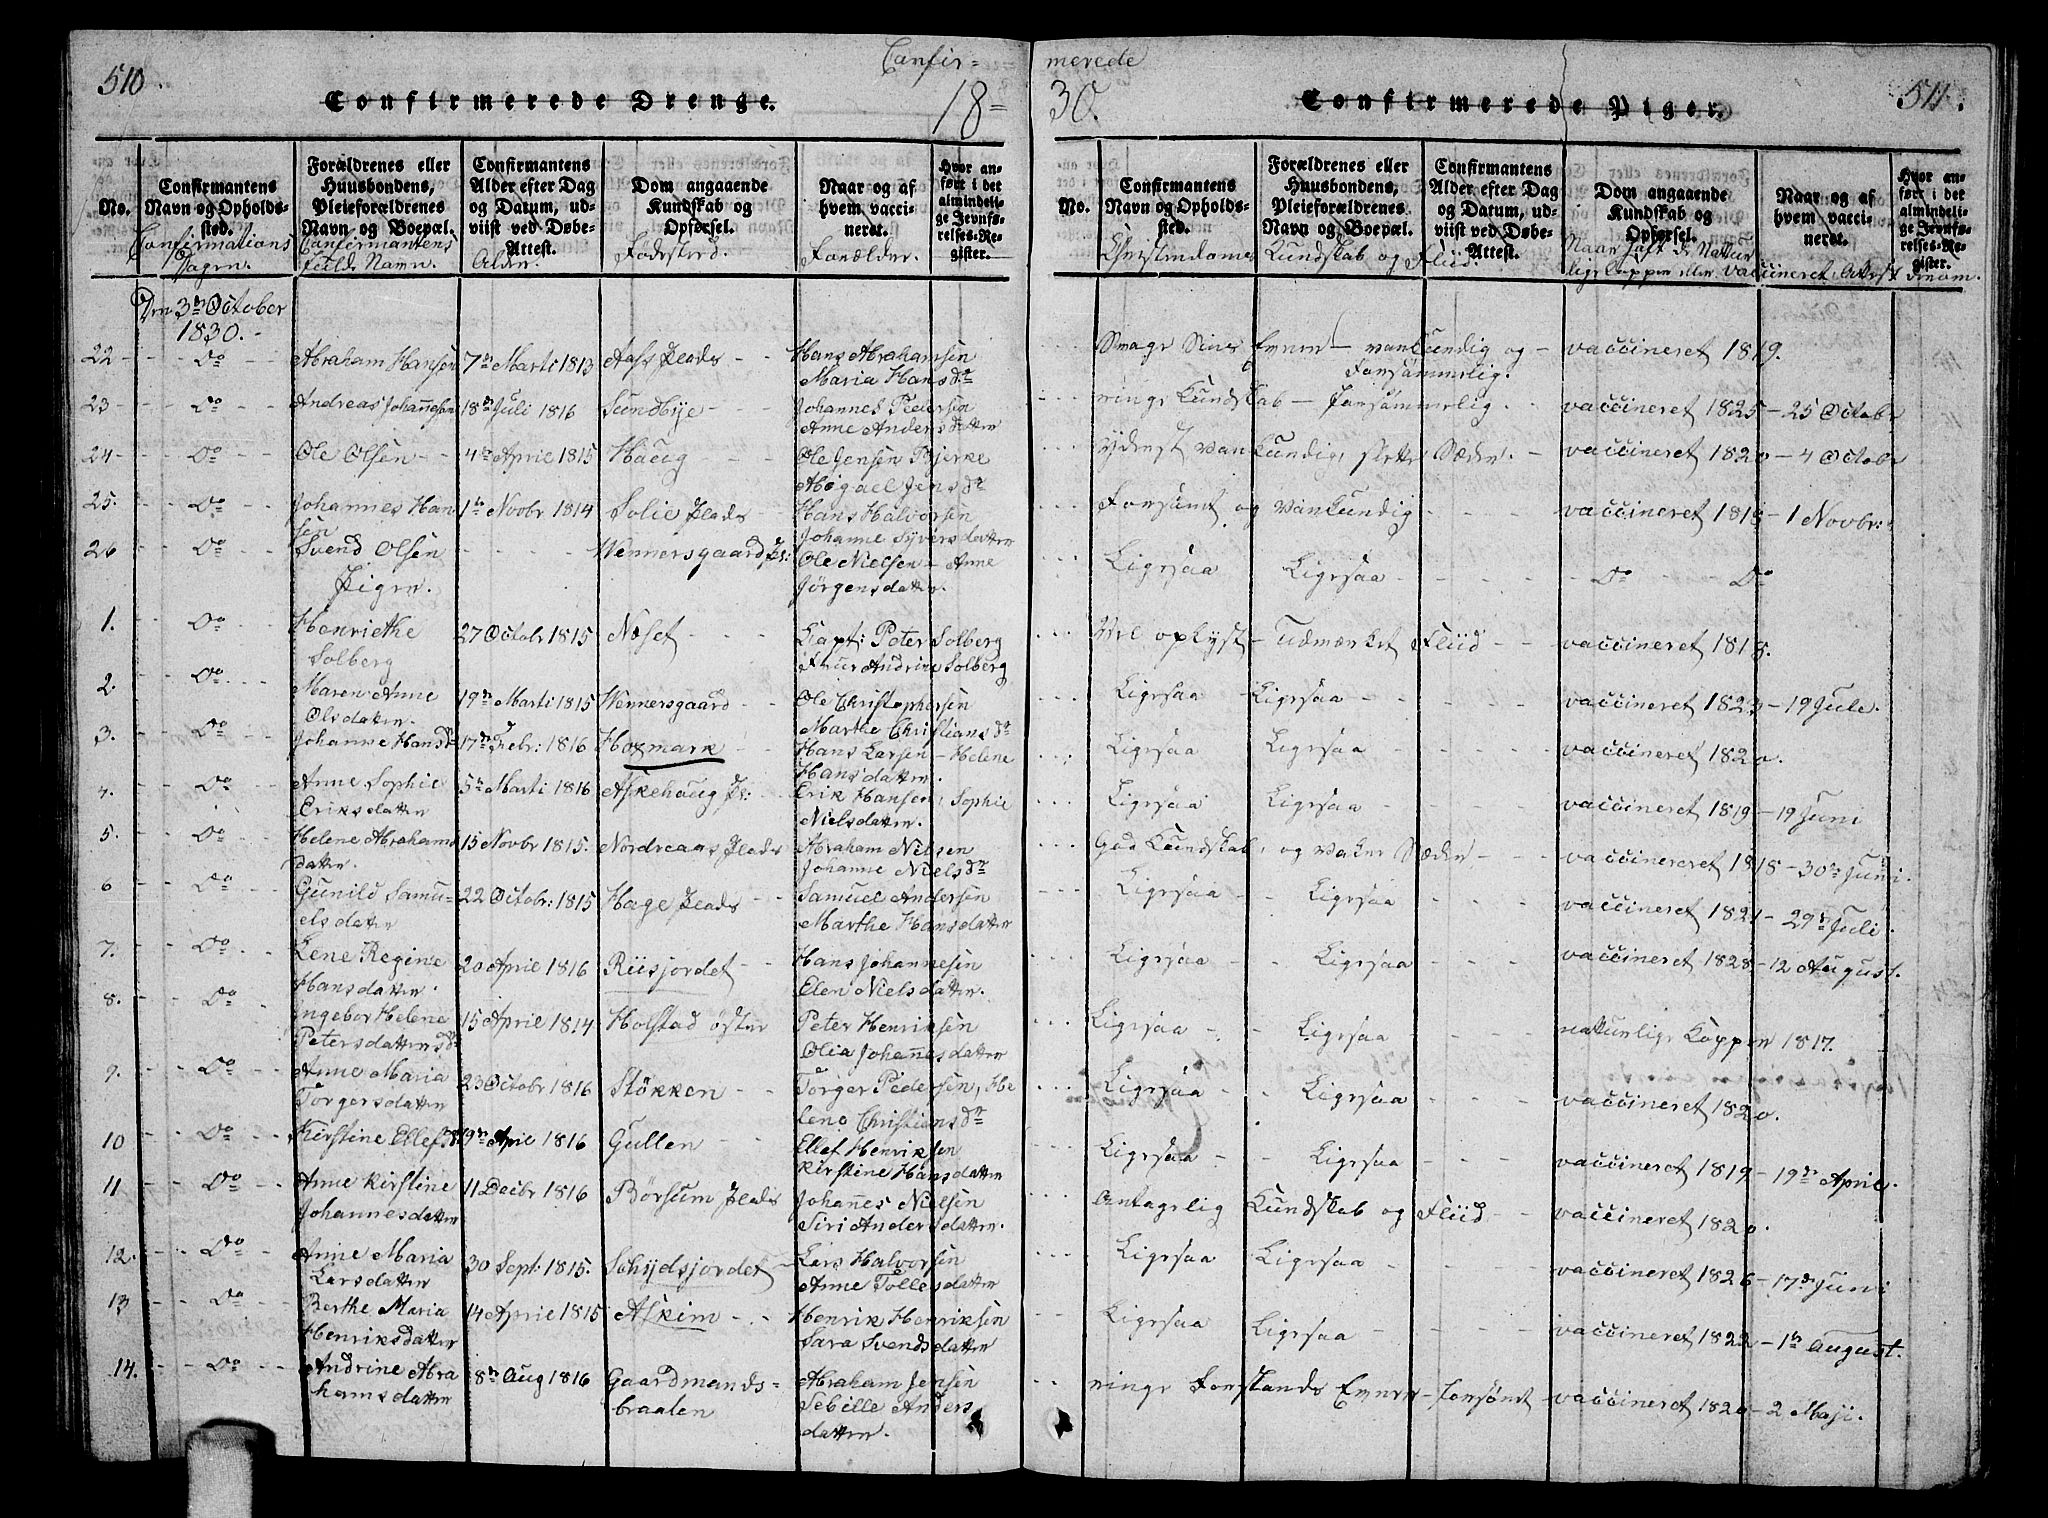 Confir- merede
510.
Confirmerede Drenge.
18= 30.
Confirmerede Piger.
511.
No.
Confirmantens Navn og Opholdssted.
Forældrenes eller Huusbondens, Pleieforældrenes Navn og Boepæl.
Confirmantens Alder efter Dag og Datum, udviist ved Døbe-Attest.
Dom angaaende Kundskab og Opførsel.
Naar og af hvem vaccineret.
Hvor anført i det almindelige Jevnførelses-Register.
No.
Confirmantens Navn og Opholdssted.
Forældrenes eller Huusbondens, Pleieforældrenes Navn og Boepæl.
Confirmantens Alder efter Dag og Datum, udviist ved Døbe-Attest.
Dom angaaende Kundskab og Opførsel.
Naar og af hvem vaccineret.
Hvor anført i det almindelige Jevnførelses-Register.
Confirmations Dagen.
Confirmantens fulde Navn.
Alder.
Fødested.
Forælder.
Christendoms Kundskab og Fliid.
Naar haft de Naturlige Copper eller vaccineret, Attest derom.
Den 3de October
1830.
22 Do Abraham Hansen 7de Marti 1813 Aas Plads Hans Abrahamsen Maria Hansdr Svage Sine Evner - vankundig og forsømmelig. vaccineret 1819.
23 Do Andreas Johannesen 18de Juli 1816 Sundbye Johannes Pedersen Anne Andersdatter ringe Kundskab - forsømmelig vaccineret 1825 - 25 Octobr
24 Do Ole Olsen 4de April 1815 Haug Ole Jensen Bjerke Abigael Jensdr yderst vankundig, slette Sæder. vaccineret 1820 - 4 Octobr
25. Do Johannes Hansen 1ste Novbr 1814 Solie Plads Hans Halvorsen Johanne Syversdatter Forsømt og vankundig vaccineret 1818 - 1 Novbr:
26 Do Svend Olsen Wennersgaard Pl: Ole Nielsen - Anne Jørgensdatter. Ligesaa Ligesaa Do Do
Piger.
1. Do Henriethe Solberg 27 Octobr 1815 Næset Capt: Peter Solberg Frue Andrine Solberg Vel oplyst - Udmærket Fliid vaccineret 1818.
2. Do Maren Anne Olsdatter. 19de Marti 1815 Wennersgaard Ole Christophersen Marthe Christiansdr Ligesaa Ligesaa vaccineret 1823 - 19 Jule.
3. Do Johanne Hansdr 17de Febr: 1816 Hogmark Hans Larsen - Helene Hansdatter. Ligesaa Ligesaa vaccineret 1820.
4. Do Anne Sophie Eriksdatter 5te Marti 1816 Askehaug Pl: Erik Hansen, Sophie Nielsdatter. Ligesaa Ligesaa vaccineret 1819 - 19 Juni
5. Do Helene Abrahamsdatter. 15 Novbr 1815. Nordreaas Plads Abraham Nielsen Johanne Nielsdr God Kundskab, og vakre Sæder vaccineret 1818 - 30te Juni.
6 Do Gunild Samuelsdatter 22 Octobr: 1815 Hage Plads Samuel Andersen Marthe Hansdatter Ligesaa Ligesaa vaccineret 1821 - 29de Juli.
7. Do Lene Regine Hansdatter. 20 April 1816 Riisjordet Hans Johannesen Elen Nielsdatter. Ligesaa Ligesaa vaccineret 1828 - 12 August.
8. Do Ingebor Helene Petersdatter 15 April 1814 Holstad øster Peter Henriksen Olia Johannesdatter Ligesaa Ligesaa naturlige Kopper 1817.
9. Do Anne Maria Torgersdatter 23 Octobr 1816 Støkken Torger Pedersen, Helene Christiansdr Ligesaa Ligesaa vaccineret 1820.
10 Do Kirstine Ellefsdr 19de April 1816 Gullen Ellef Henriksen Kirstine Hansdatter Ligesaa Ligesaa vaccineret 1819 - 19de April.
11 Do Anne Kirstine Johannesdatter 11 Decbr 1816 Børsum Plads Johannes Nielsen Siri Andersdatter. Antagelig Kundskab og Fliid vaccineret 1820.
12. Do Anne Maria Larsdatter 30 Sept: 1815. Schydsjordet Lars Halvorsen Anne Tollesdatter Ligesaa Ligesaa vaccineret 1826 - 17de Juni
13 Do Berthe Maria Henriksdatter 14 April 1815 Askim Henrik Henriksen Sara Svendsdatter Ligesaa Ligesaa vaccineret 1822 - 1ste August.
14. Do Andrine Abrahamsdatter 8de Aug 1816 Gaardmandsbraaten Abraham Jensen Sebille Andersdatter. ringe Forstands Evner - forsømt vaccineret 1820 - 2 Maji.